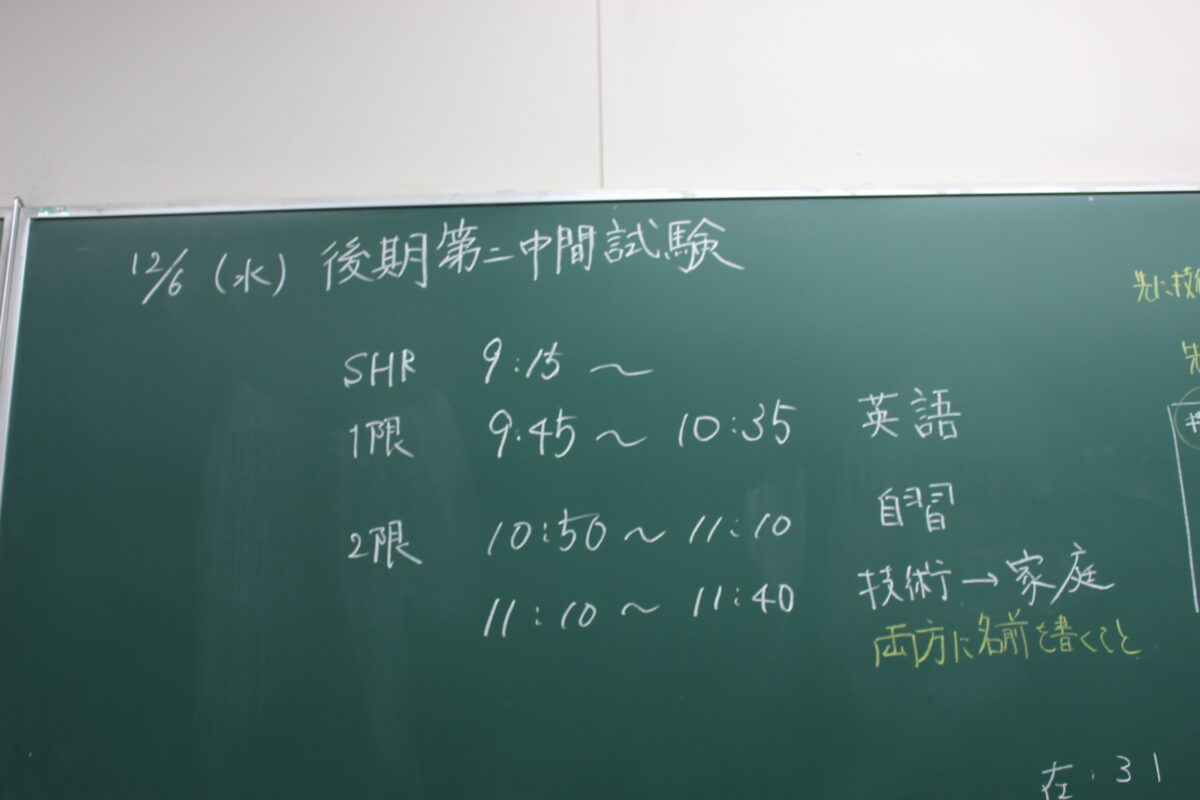 12/6 (水) 後期第二中間試験
SHR 9:15 ～
1限 9:45 ～ 10:35 英語
2限 10:50 ～ 11:10 自習
11:10 ～ 11:40 技術→家庭
両方に名前を書くこと
先に技術
先
在:31